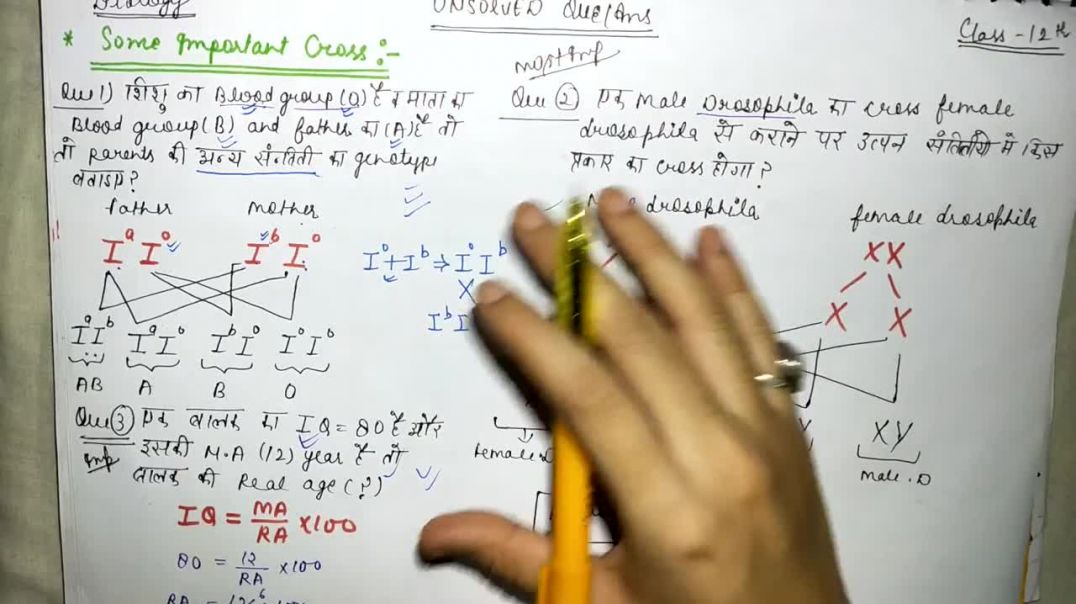 Biology
UNSOLVED Que/Ans
Class - 12th
* Some Important Cross :-
Most Imp
Que 1) शिशु का Blood group (O) है व माता का
Blood group (B) and father का (A) है तो
तो parents की अन्य संन्तिती का genotype
बताइए?
father mother
IᵃIᵒ IᵇIᵒ
Iᵒ + Iᵇ ⇒ IᵒIᵇ
X
Iᵇ
IᵃIᵇ IᵃIᵒ IᵇIᵒ IᵒIᵒ
AB A B O
Que (3) एक बालक का IQ = 80 है और
Imp इसकी M.A (12) year है तो
बालक की Real age (?)
IQ = MA/RA × 100
80 = 12/RA × 100
RA =
Que (2) एक male Drosophila का cross female
drosophila से कराने पर उत्पन संतितीयो में किस
प्रकार का cross होगा?
drosophila female drosophila
XX
X X
XY
Female male . D